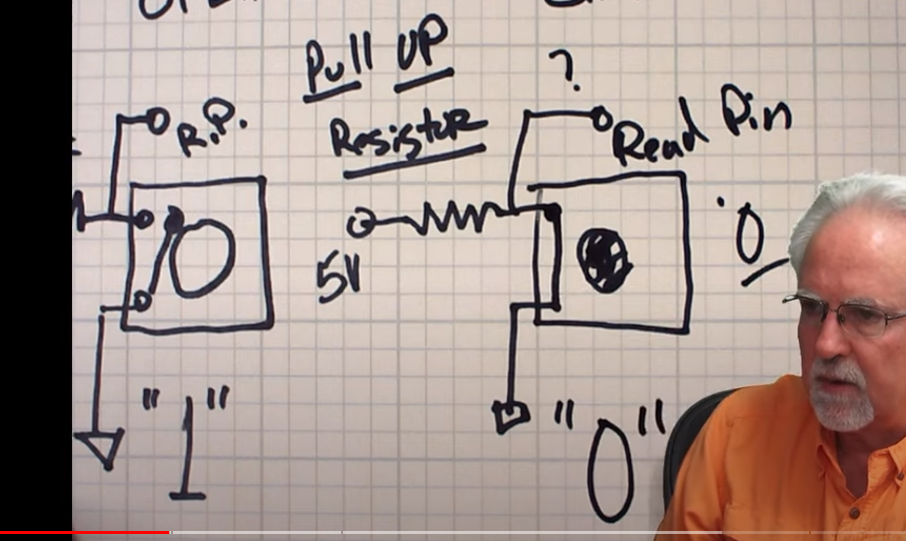 Pull UP
Resistor
?
R.P.
Read Pin
5V
0
"1"
"0"